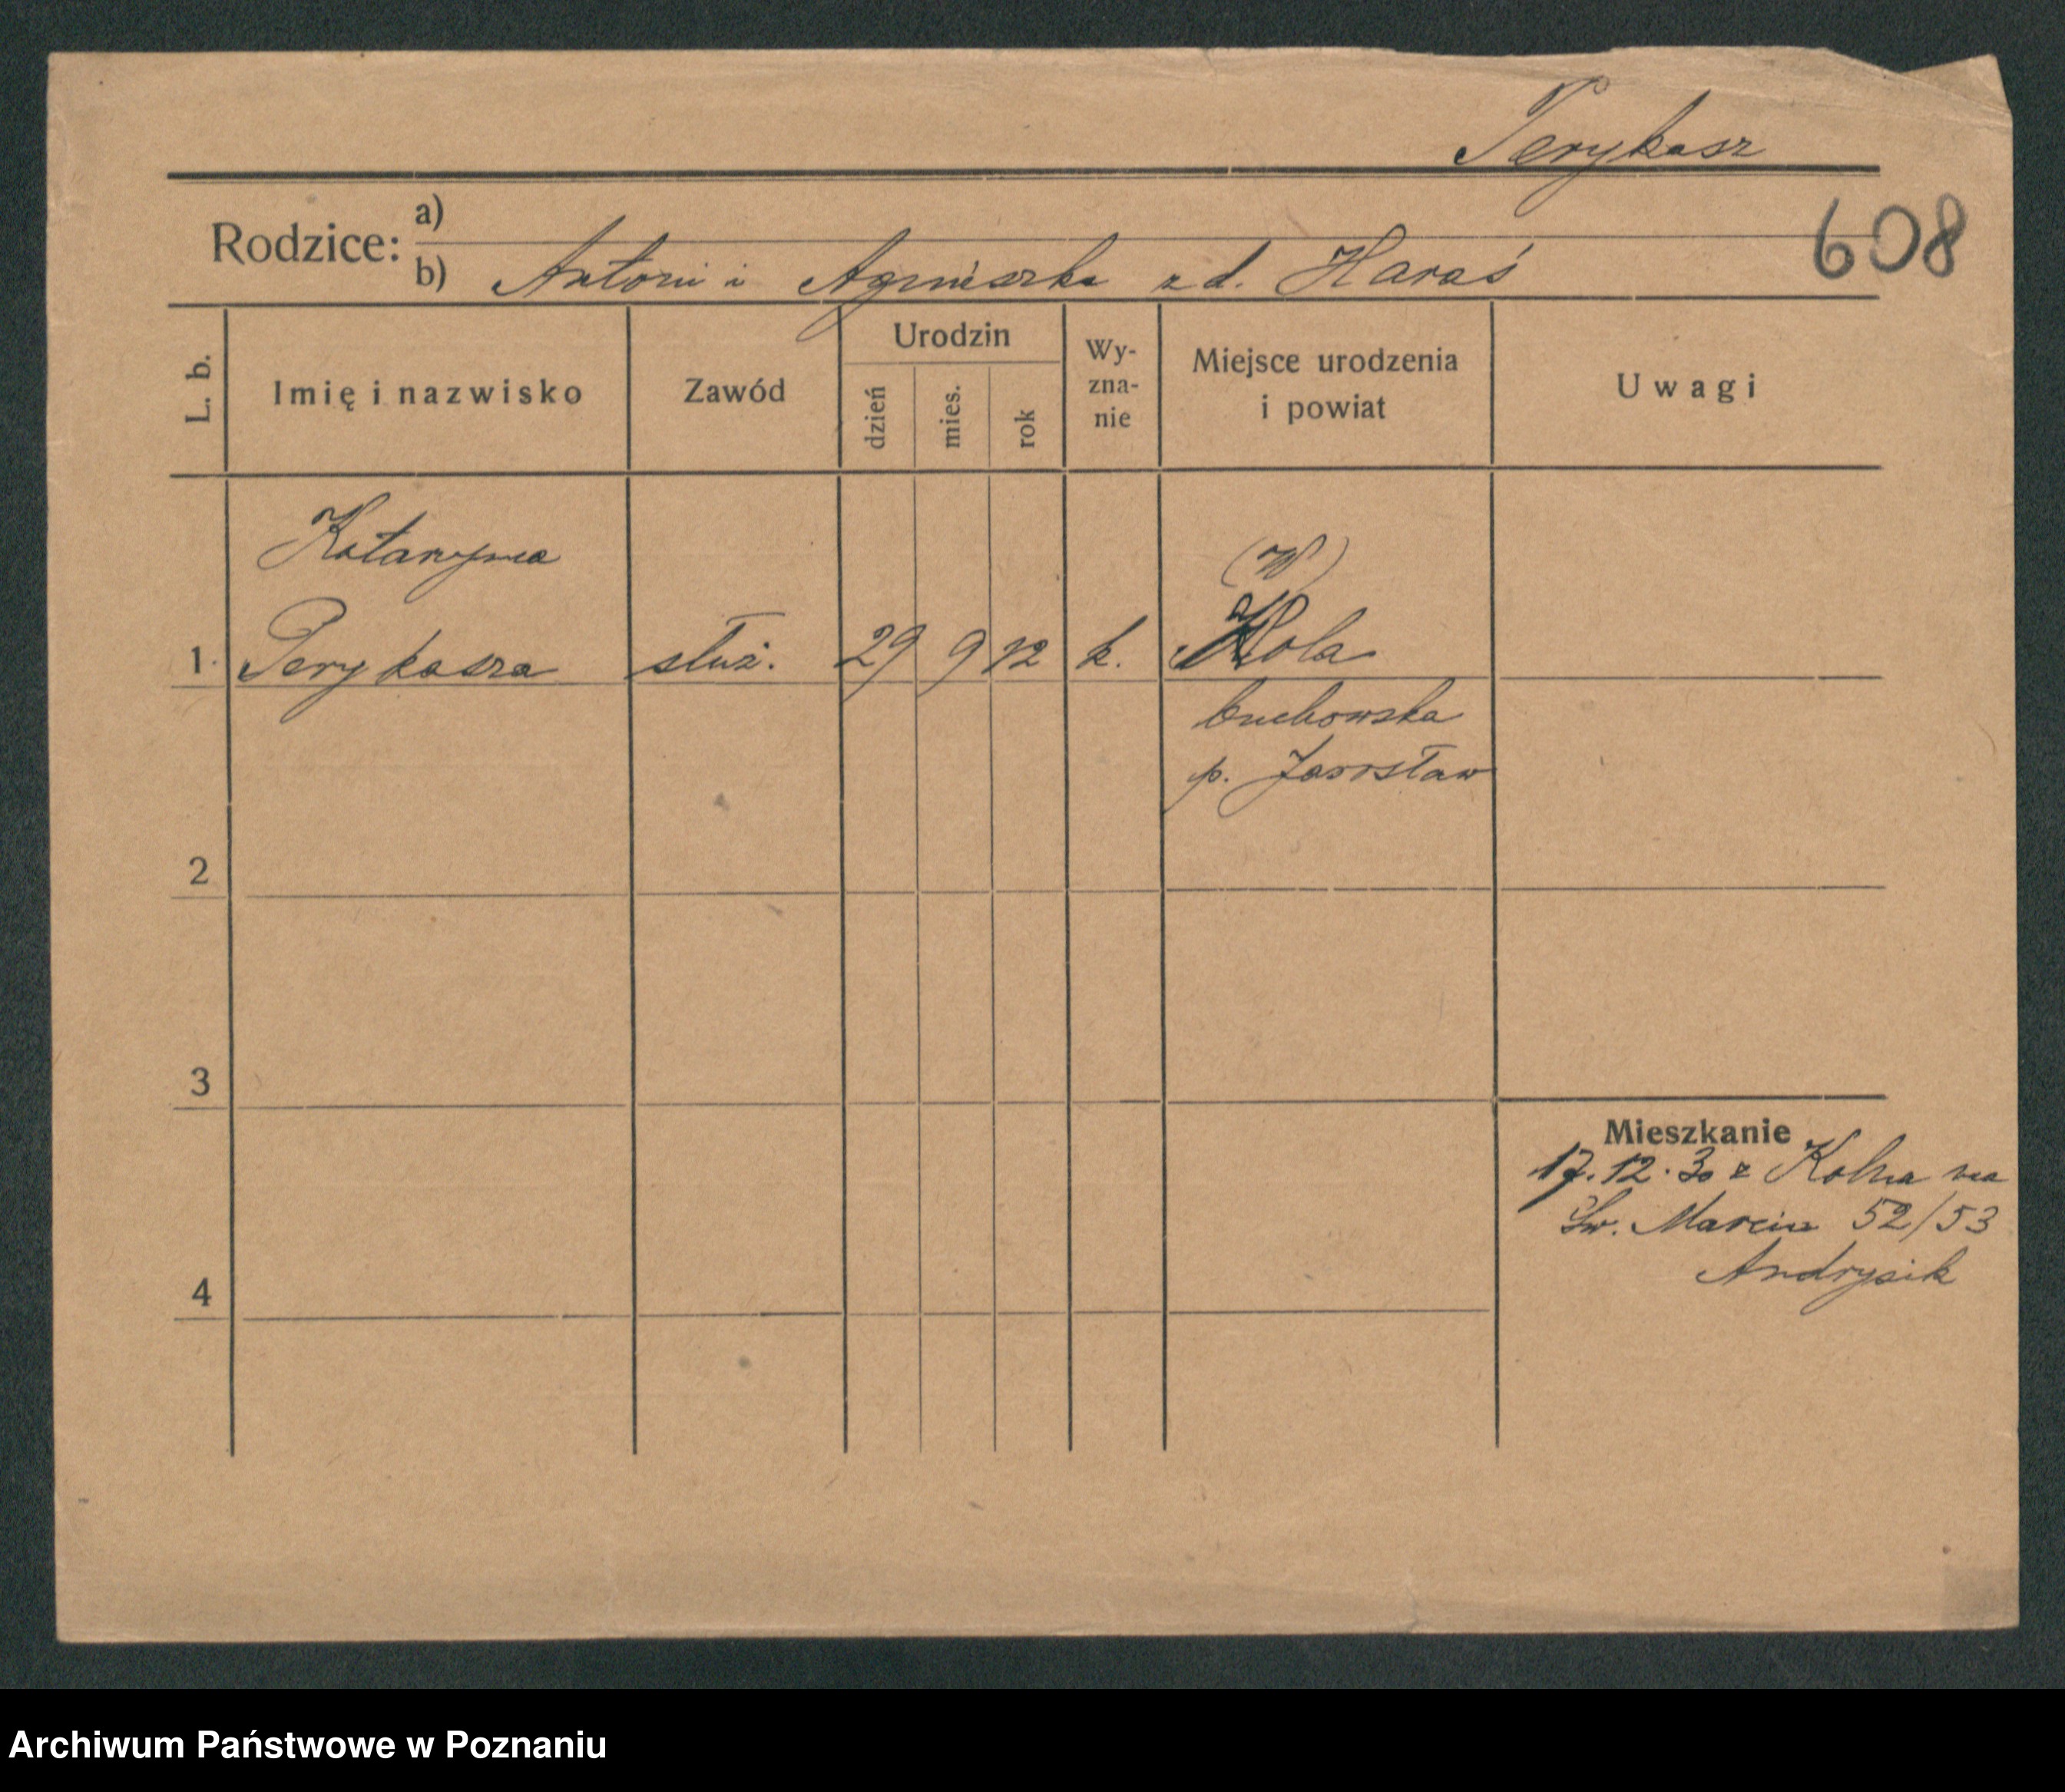 Perykasz
608
Rodzice:
a)
b) Antoni i Agnieszka zd. Haraś
L. b.
Imię i nazwisko
Zawód
Urodzin
dzień
mies.
rok
Wy-
zna-
nie
Miejsce urodzenia
i powiat
Uwagi
Katarzyna
(W)
1 Perykasza służ. 29 9 12 k. Wola
buchowska
p. Jarosław
2
3
Mieszkanie
17.12.30 z Kolna na
Św. Marcin 52/53
Andrysik
4
Archiwum Państwowe w Poznaniu